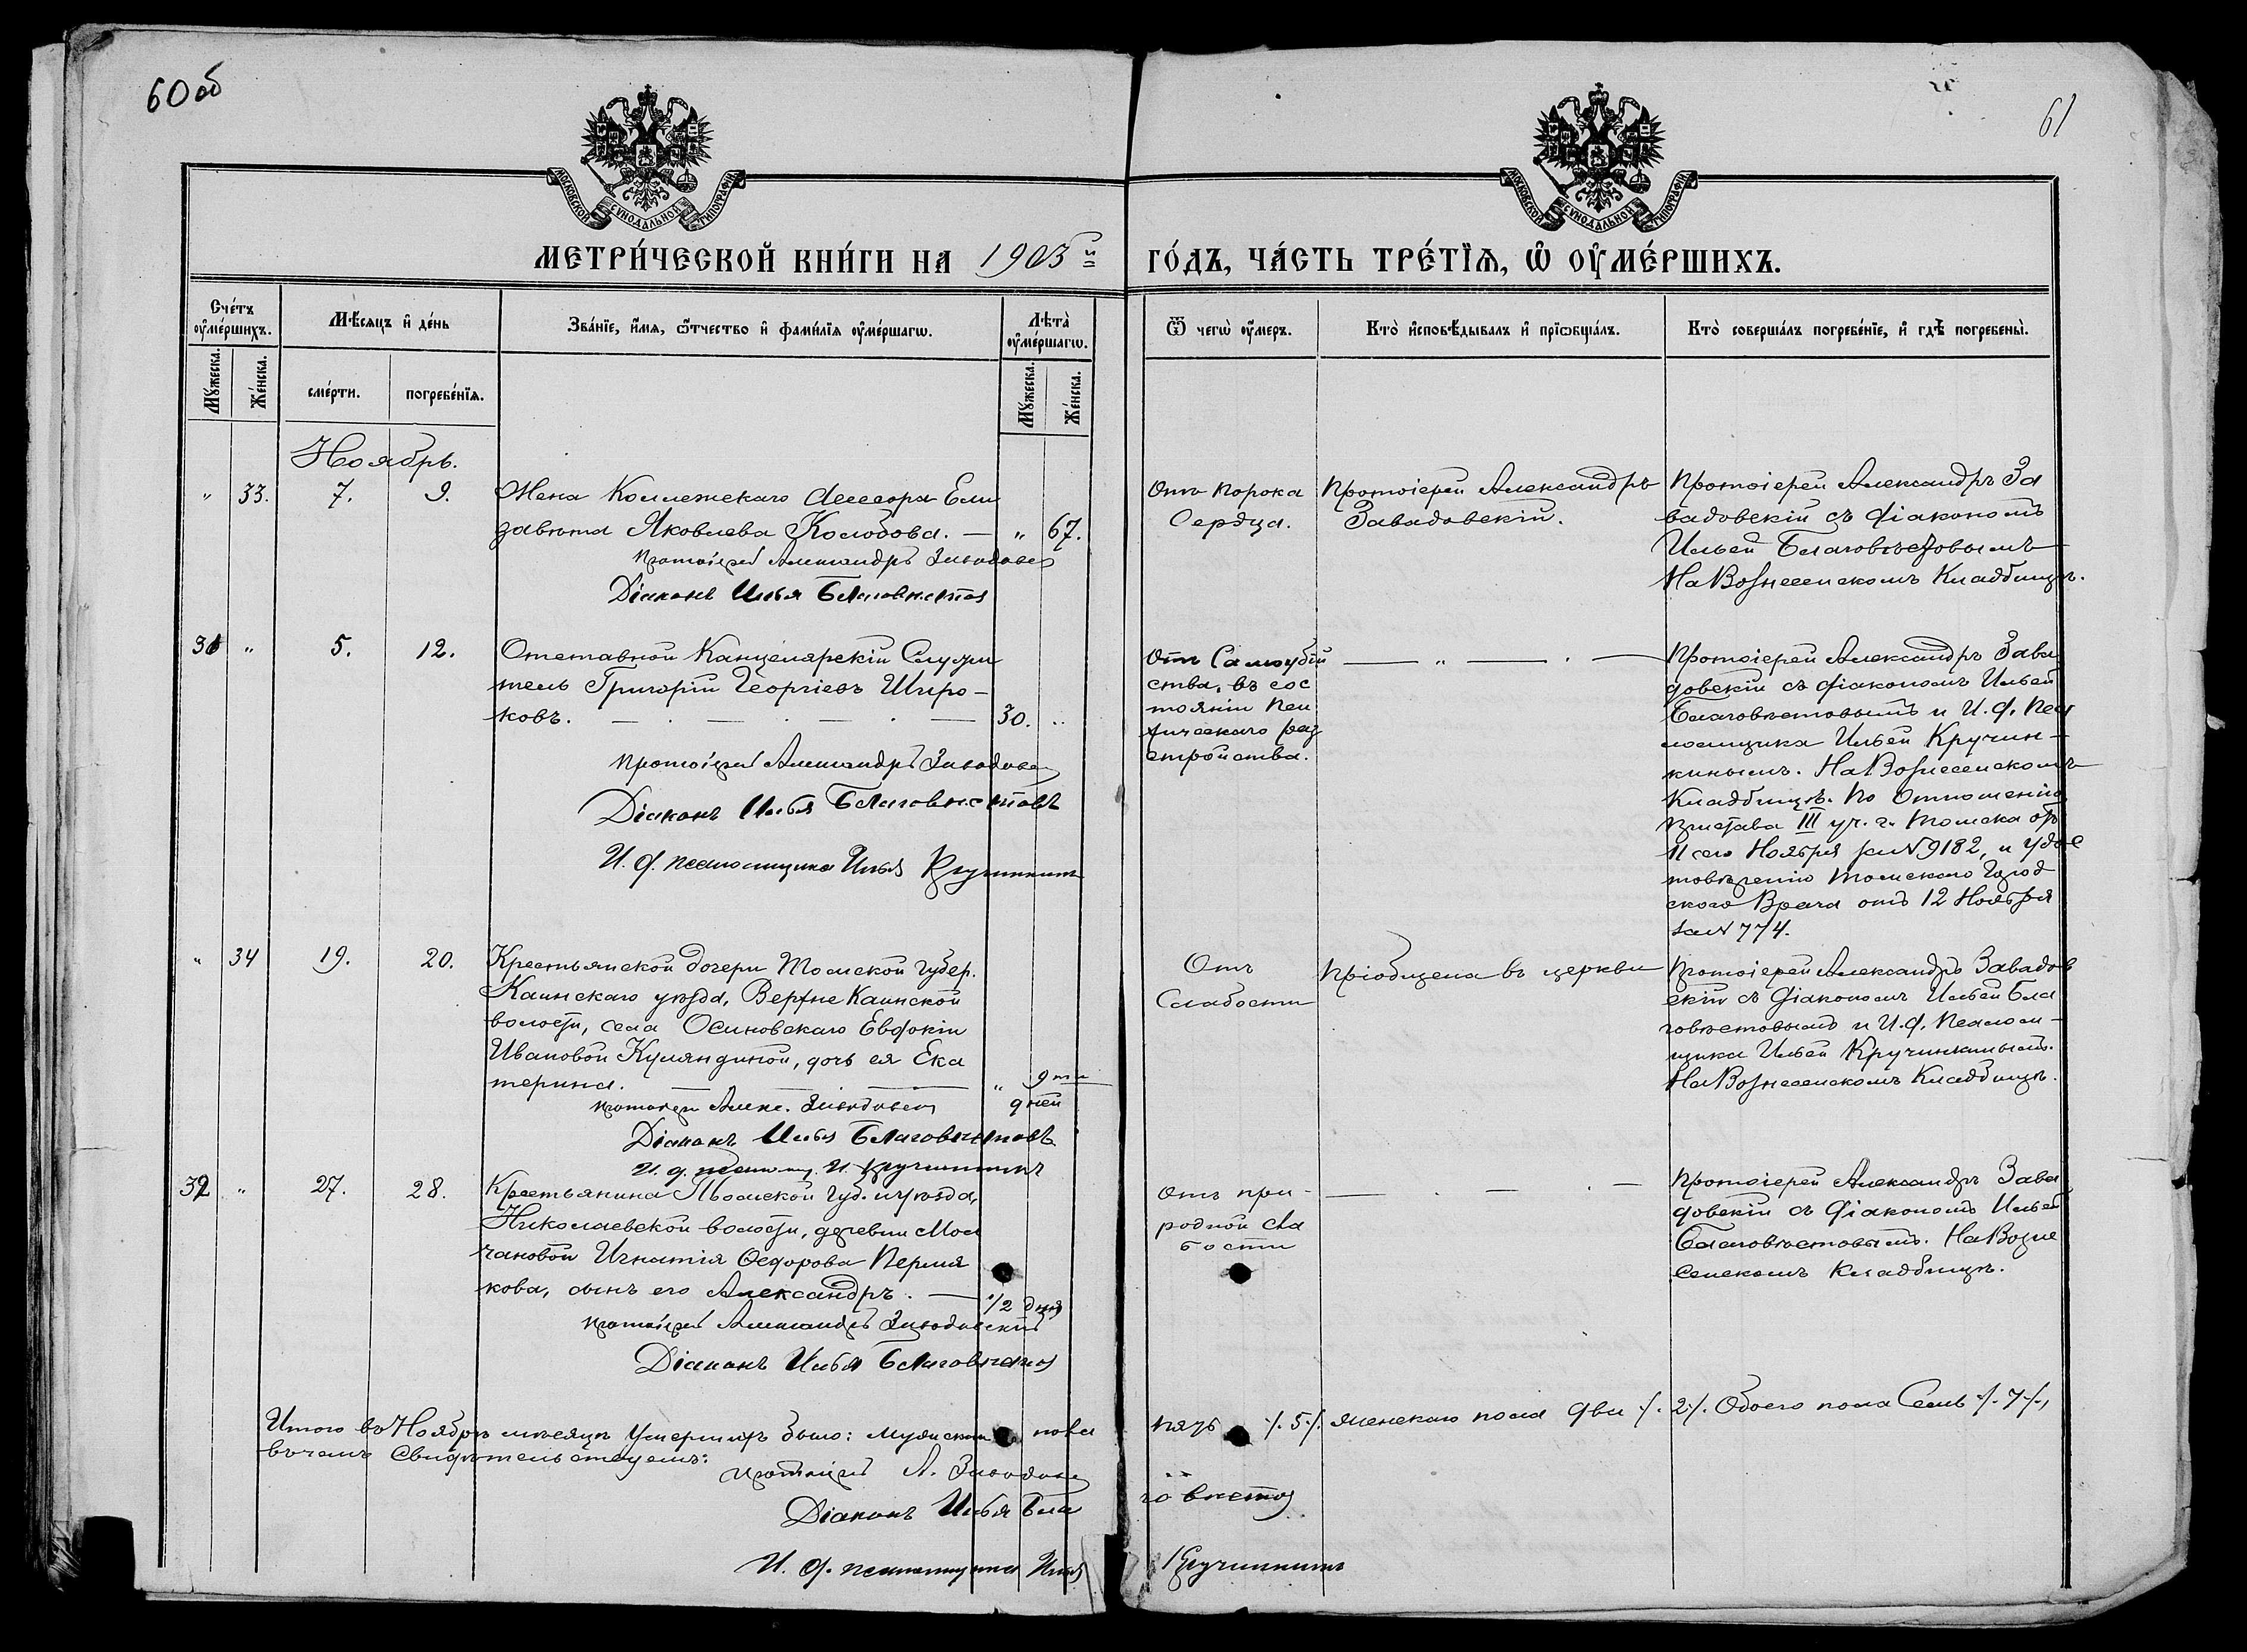 60об
61
МОСКОВСКОЙ СУНОДАЛЬНОЙ ТИПОГРАФІИ
МОСКОВСКОЙ СУНОДАЛЬНОЙ ТИПОГРАФІИ
МЕТРИ́ЧЕСКОЙ КНИ́ГИ НА 1903й ГО́ДЪ, ЧА́СТЬ ТРЕ́ТЇѦ, Ѽ ОУ҆МЕ́РШИХЪ.
Сче́тъ оу҆ме́ршихъ.
Мꙋ́жеска.
Же́нска.
Мѣ́сяцъ и҆ де́нь
сме́рти.
погребе́нїѧ.
Зва́нїе, и҆́мѧ, ѻ҆́тчество и҆ фами́лїѧ оу҆ме́ршагѡ.
Лѣта̀ оу҆ме́ршагѡ.
Мꙋ́жеска.
Же́нска.
Ѿ чегѡ̀ оу҆́меръ.
Кто̀ и҆сповѣ́дывалъ и҆ прїѡбща́лъ.
Кто̀ соверша́лъ погребе́нїе, и҆ гдѣ̀ погребены̀.
Ноябрь.
" 33. 7. 9.
Жена Коллежскаго Ассесора Ели
завета Яковлева Колобова. — " 67.
Протоіерей Александръ Заводовс
Діаконъ Илья Благовѣстов
Отъ порока
Сердца.
Протоіерей Александръ
Завадовскій.
Протоіерей Александръ За
вадовскій съ діакономъ
Ильей Благовѣстовымъ
На Вознесенскомъ Кладбищѣ.
31 " 5. 12.
Отставной Канцелярскій Служи
тель Григорій Георгіевъ Широ-
ковъ. — . — . — . — 30. "
Протоіерей Александръ Заводовс
Діаконъ Илья Благовѣстовъ
И. д. псаломщика Илья Кручинкинъ
Отъ Самоубій
ства, въ сос
тояніи пси
хическаго раз
стройства.
— " — . —
Протоіерей Александръ Зава
довскій съ діакономъ Ильей
Благовѣстовымъ и И. д. Пса
ломщика Ильей Кручин-
кинымъ. На Вознесенскомъ
Кладбищѣ. По Отношенію
Пристава III уч. г. Томска отъ
11 сего Ноября за № 9182, и удос
товѣренію Томскаго Город
ского Врача отъ 12 Ноября
за № 774.
" 34 19. 20.
Крестьянской дочери Томской губер.
Каинскаго уѣзда, Верхне Каинской
волости, села Осиновскаго Евдокіи
Ивановой Куляндиной, дочь ея Ека
терина. — — — " 9ти
дней
Протоіерей Алекс. Заводовскій
Діаконъ Илья Благовѣстовъ
И. д. псаломщ. И. Кручинкинъ
Отъ
Слабости
Пріобщена въ церкви
Протоіерей Александръ Завадов
скій съ діакономъ Ильей Бла
говѣстовымъ и И. д. Псалом-
щика Ильей Кручинкинымъ.
На Вознесенскомъ Кладбищѣ.
32 " 27. 28.
Крестьянина Томской губ. и уѣзда,
Николаевской волости, деревни Мол
чановой Игнатія Ѳедорова Пермя
кова, сынъ его Александръ. — 1/2 дня
Протоіерей Александръ Заводовскій
Діаконъ Илья Благовѣстов
Отъ при-
родной сла
бости
— . — . —
Протоіерей Александръ Зава
довскій съ діакономъ Ильей
Благовѣстовымъ. На Возне
сенскомъ кладбищѣ.
Итого въ Ноябрѣ мѣсяцѣ умершихъ было: мужска пола пять ./. 5 ./. женскаго пола две ./. 2 ./. Обоего пола Семь ./. 7 ./.,
въ чемъ свидѣтельствуемъ:
Протоіерей А. Заводовс
Діаконъ Илья Благовѣстов
И. д. псаломщика Илья Кручинкинъ